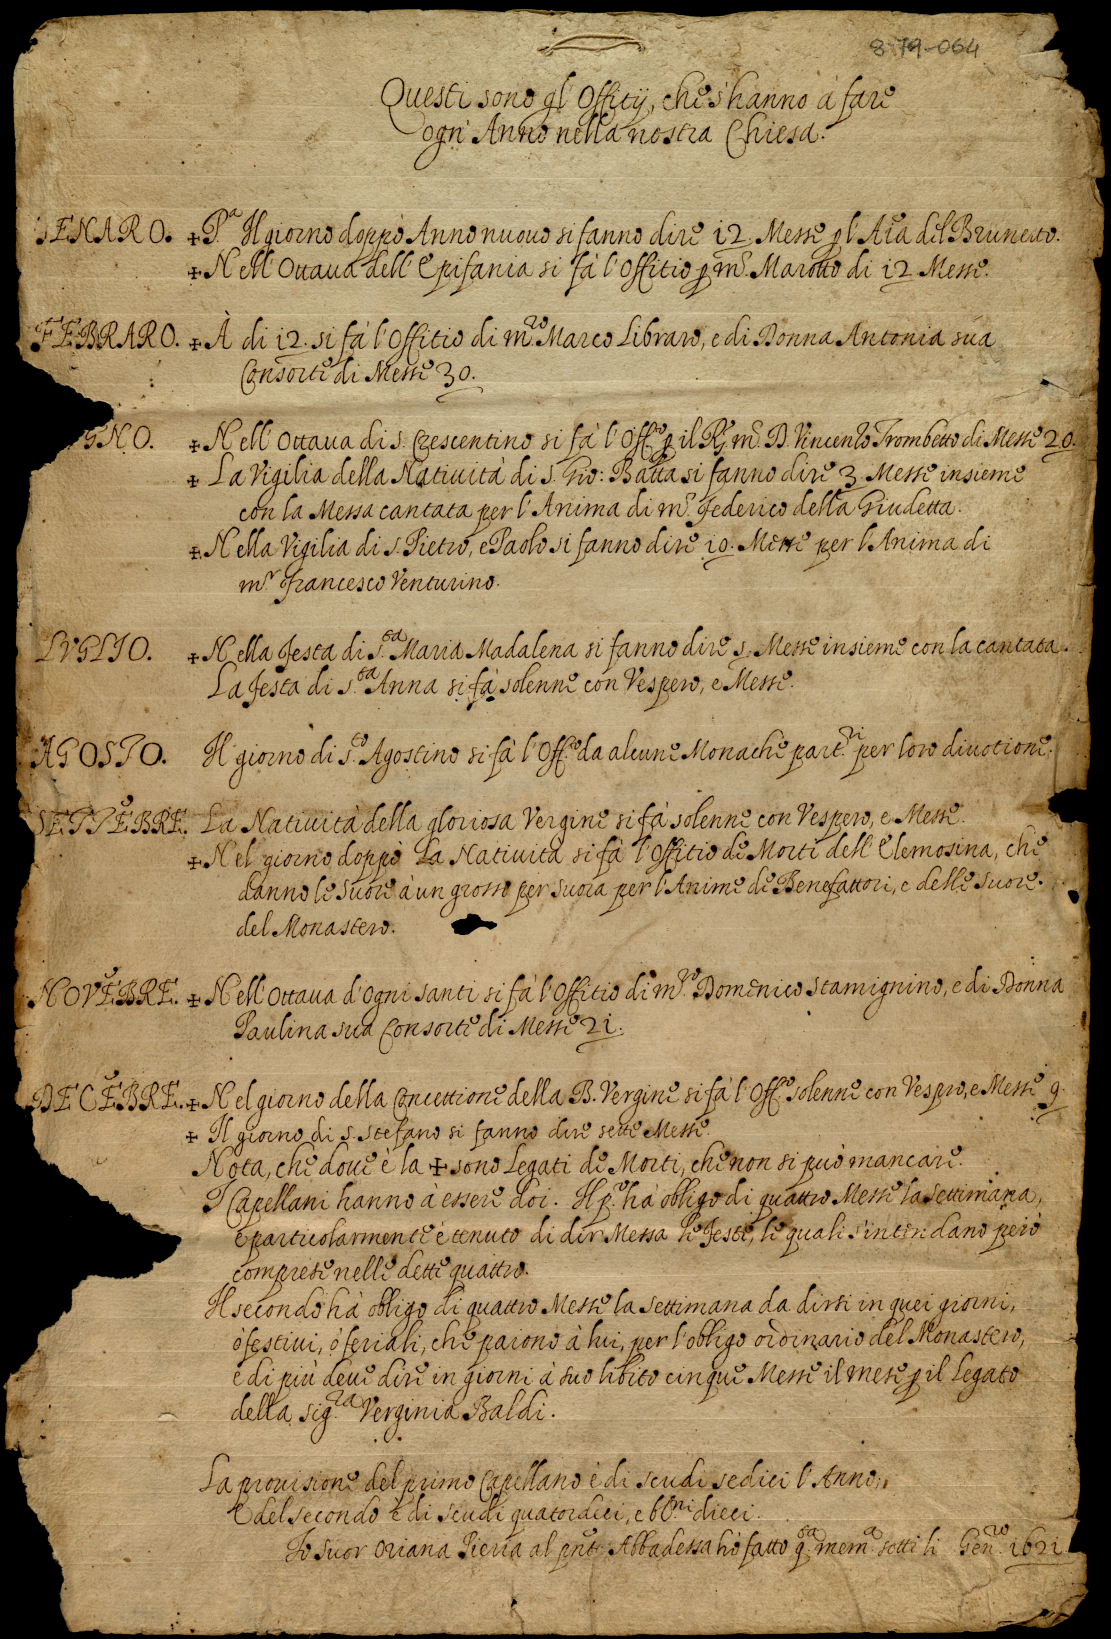 8-79-064
Questi sono gl' Offitij, che s'hanno à fare
ogn' Anno nella nostra Chiesa.
GENARO. ✠ P.ª Il giorno doppo Anno nuovo si fanno dire 12. Messe p l'Aĩa del Brunetto.
✠ Nell' Ottaua dell' Epifania si fà l'Offitio p m.ʳ Marotto di 12 Messe.
FEBRARO. ✠ À di 12. si fà l'Offitio di m.ʳᵒ Marco Libraro, e di Donna Antonia sua
Consorte di Messe 30.
GNO. ✠ Nell' Ottaua di S. Crescentino si fà l'Off.ᵒ p il R. m.ʳ D. Vincenzo Trombetto di Messe 20.
✠ La Vigilia della Natiuità di S. Gio: Batta si fanno dire 3. Messe insieme
con la Messa cantata per l'Anima di m.ʳ Federico della Giudetta.
✠ Nella Vigilia di S. Pietro, e Paolo si fanno dire 10. Messe per l'Anima di
m.ʳ Francesco Venturino.
LVGLIO. ✠ Nella Festa di S.ᵗᵃ Maria Madalena si fanno dire 5. Messe insieme con la cantata.
La Festa di S.ᵗᵃ Anna si fà solenne con Vespero, e Messe.
AGOSTO. Il giorno di S.ᵗᵒ Agostino si fà l'Off.ᵒ da alcune Monache part.ʳⁱ per loro diuotione.
SETTẼBRE. La Natiuità della gloriosa Vergine si fà solenne con Vespero, e Messe.
✠ Nel giorno doppò La Natiuità si fà l'Offitio de Morti dell' Elemosina, che
danno le Suore à un grosso per Suora per l'Anime de Benefattori, e delle Suore.
del Monastero.
NOVẼBRE. ✠ Nell' Ottaua d'Ogni Santi si fà l'Offitio di m.ʳᵒ Domenico Stamignino, e di Donna
Paulina sua Consorte di Messe 21.
DECẼBRE. ✠ Nel giorno della Concettione della B. Vergine si fà l'Off.ᵒ solenne con Vespro, e Messe 9.
✠ Il giorno di S. Stefano si fanno dire sette Messe.
Nota, che doue è la ✠ sono Legati de Morti, che non si può mancare.
I Capellani hanno à essere doi. Il p.ᵒ hà obligo di quattro Messe la settimana,
e particolarmente è tenuto di dir Messa le Feste, le quali s'intendano però
comprese nelle dette quattro.
Il secondo hà obligo di quattro Messe la settimana da dirsi in quei giorni,
ò festiui, ò feriali, che parono à lui, per l'obligo ordinario del Monastero,
e di più deue dire in giorni à suo libito cinque Messe il mese p il Legato
della sig.ʳᵃ Verginia Baldi.
La prouisione del primo Capellano è di scudi sedici l'Anno;
E del secondo è di scudi quatordici, e bl.ⁿⁱ dieci.
Io Suor Oriana Pieria al pñte Abbadessa hò fatto q.ᵗᵃ mem.ª sotti li Gen.ʳᵒ 1621.